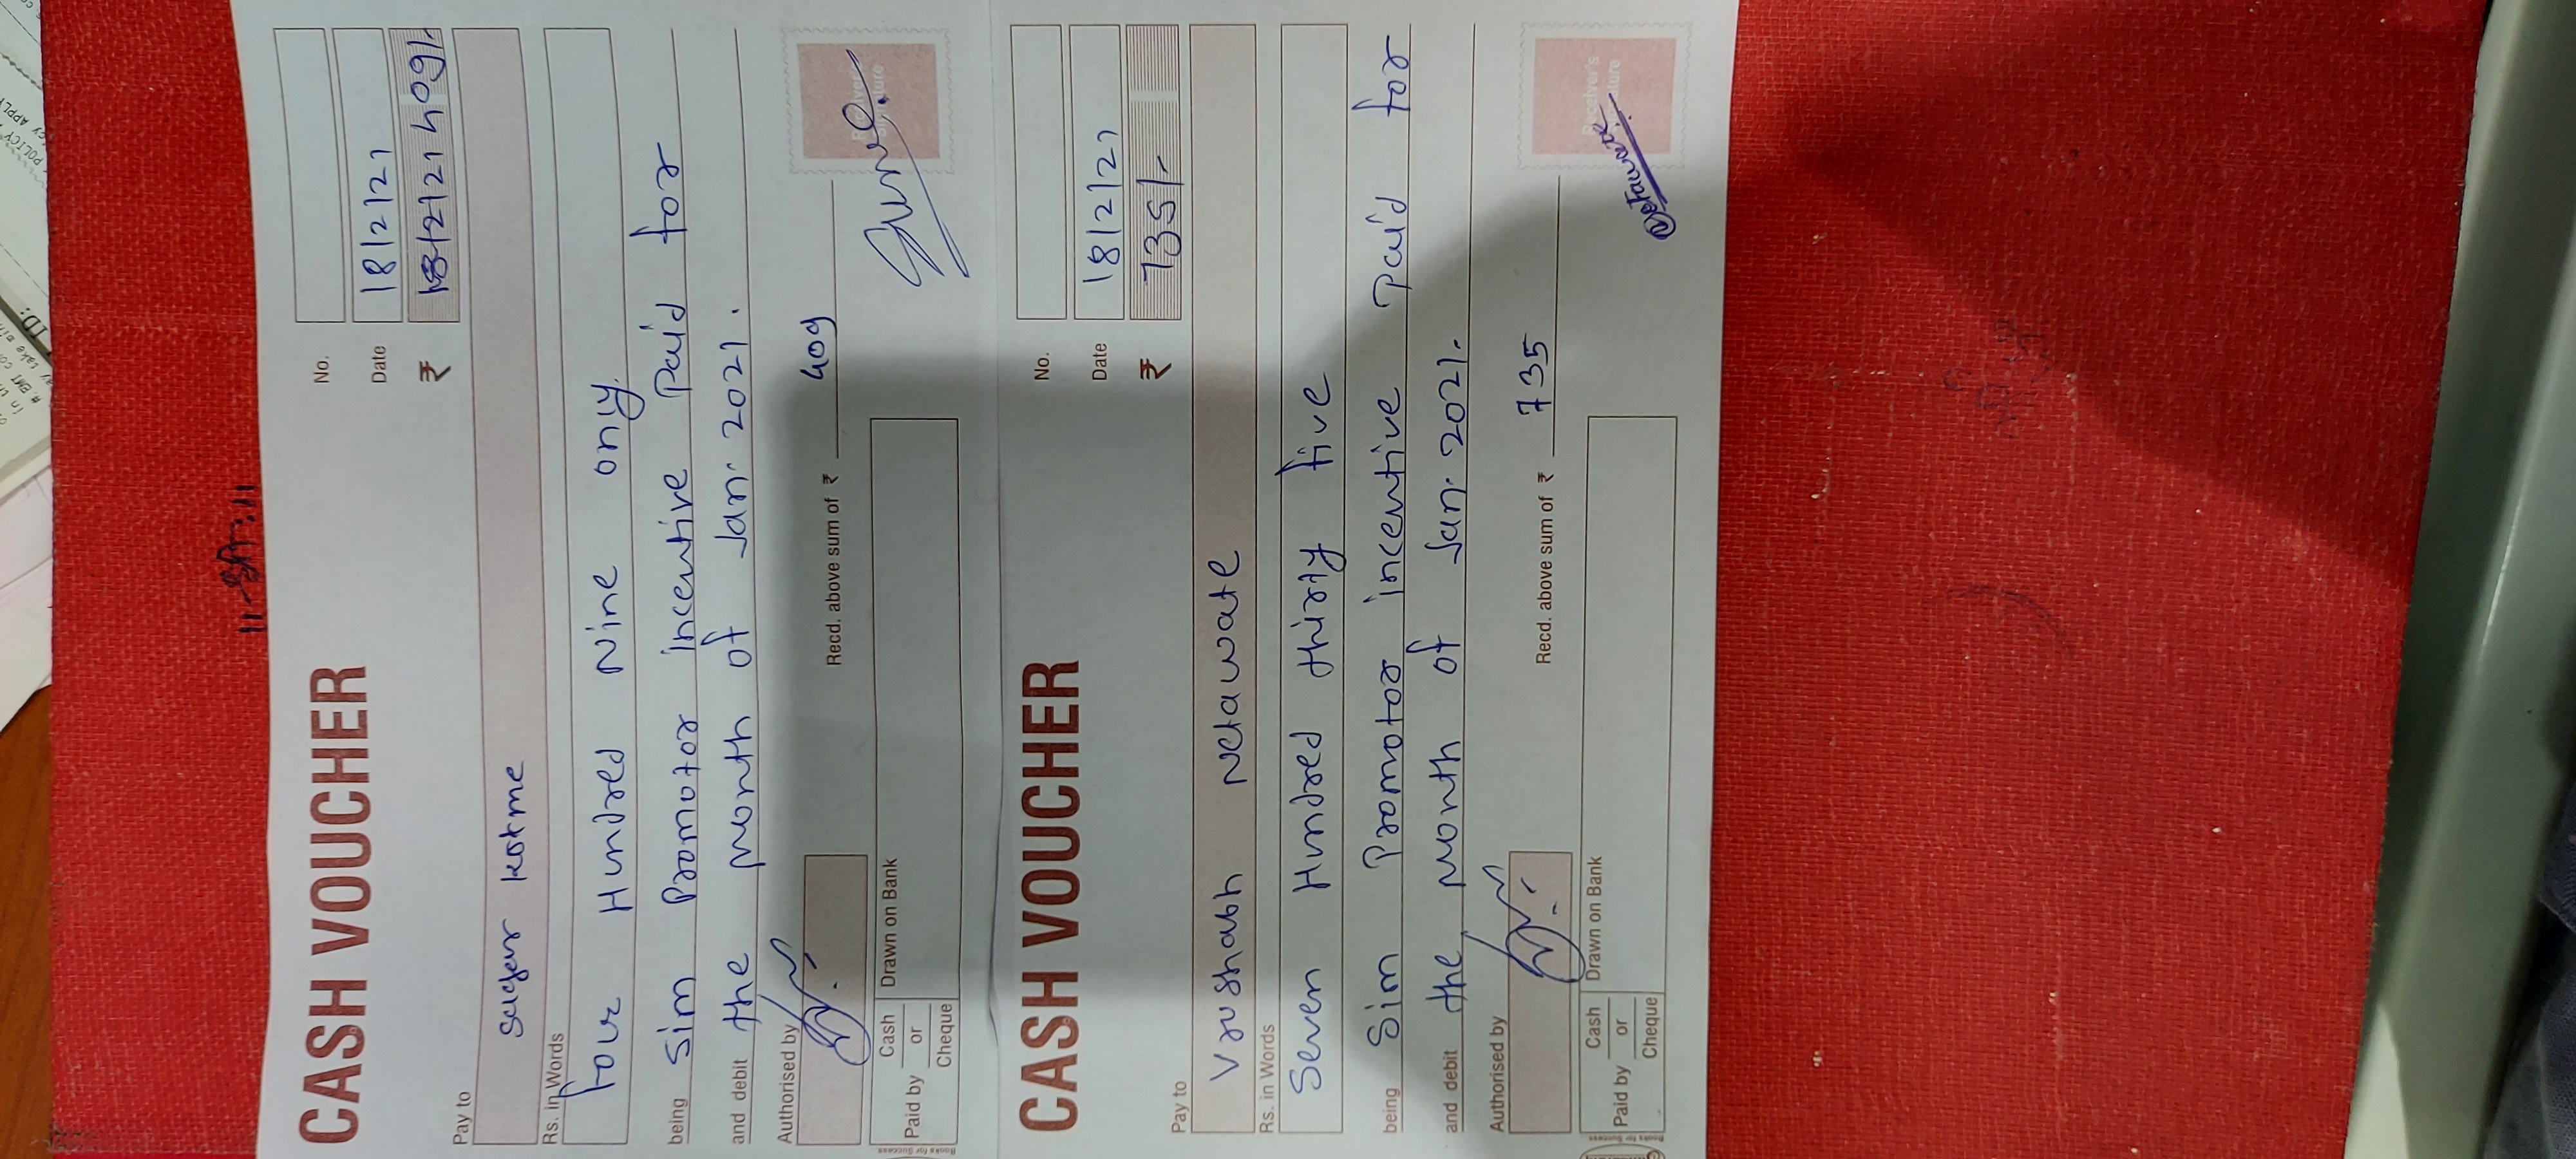 in th
# EMT co
ay take
ID:
POLICY
cy APPLY
॥ श्री: ॥
CASH VOUCHER
No.
Date 18/2/21
₹ 18/2/21 409/-
Pay to
sagar kotme
Rs. in Words
four Hundred Nine only.
being Sim Promotor incentive Paid for
and debit the month of Jan. 2021.
Authorised by
Recd. above sum of ₹ 409
Receiver's
Signature
Cash Drawn on Bank
Paid by or
Cheque
Books for Success
CASH VOUCHER
No.
Date 18/2/21
₹ 735/-
Pay to
Vrushabh Netawate
Rs. in Words
Seven Hundred thirty five
being Sim Promotor incentive Paid for
and debit the month of Jan. 2021.
Authorised by
Recd. above sum of ₹ 735
Receiver's
Signature
Netawate
Cash Drawn on Bank
Paid by or
Cheque
Books for Success